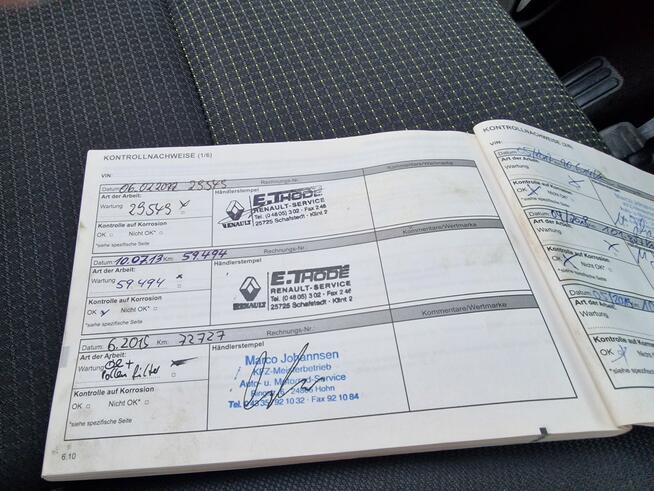 KONTROLLNACHWEISE (1/6)
VIN:
Datum: 06.02.2012 29549
Rechnungs-Nr.:
Kommentare/Wertmarke
Art der Arbeit:
Händlerstempel
Wartung
29549 x
E.THODE
RENAULT-SERVICE
Tel. (0 48 05) 3 02 · Fax 2 46
25725 Schafstedt · Klint 2
RENAULT
Kontrolle auf Korrosion
OK Nicht OK*
*siehe spezifische Seite
Datum: 10.07.13 Km: 59494
Rechnungs-Nr.:
Kommentare/Wertmarke
Art der Arbeit:
Händlerstempel
Wartung
59494 x
E.THODE
RENAULT-SERVICE
Tel. (0 48 05) 3 02 · Fax 2 46
25725 Schafstedt · Klint 2
RENAULT
Kontrolle auf Korrosion
OK Nicht OK*
*siehe spezifische Seite
Datum: 6.2015 Km: 72727
Rechnungs-Nr.:
Kommentare/Wertmarke
Art der Arbeit:
Händlerstempel
Wartung
Öl +
Pollen filter
Marco Johannsen
KFZ-Meisterbetrieb
Auto- u. Motorrad-Service
24806 Hohn
Tel. 0 43 35 / 92 10 32 · Fax 92 10 84
Kontrolle auf Korrosion
OK Nicht OK*
*siehe spezifische Seite
6.10
KONTROLLNACHWEISE (2/6)
VIN:
Datum:
Art der Arbeit:
Wartung
Kontrolle auf Korrosion
OK
*siehe spezifische Seite
Datum:
Art der Arbeit:
Wartung
Kontrolle auf Korrosion
OK Nicht OK*
*siehe spezifische Seite
Datum:
Art der Arbeit:
Wartung
Kontrolle auf Korrosion
OK Nicht OK*
*siehe spezifische Seite